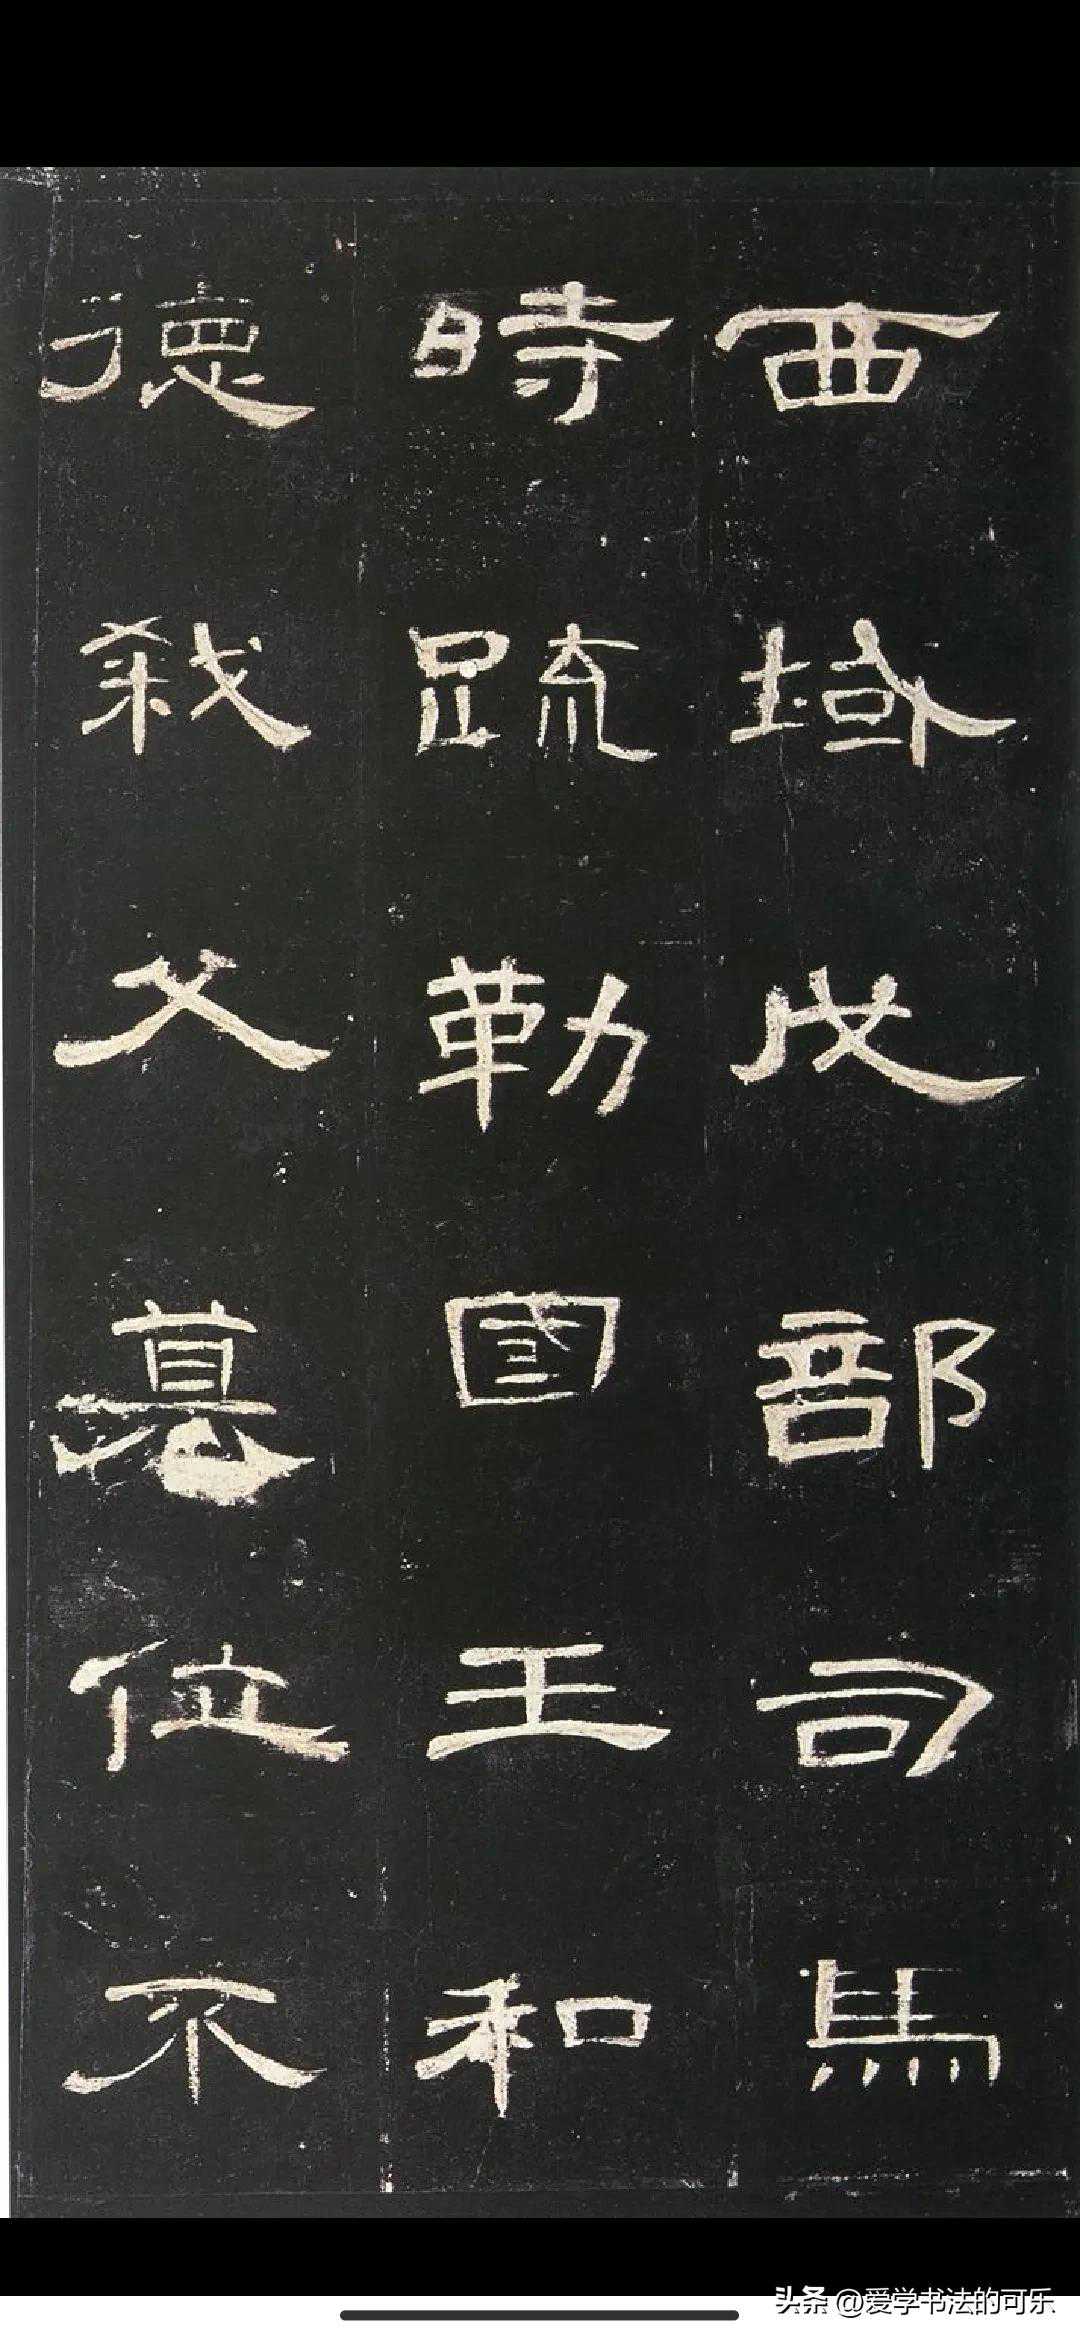 西域戊部司馬
時疏勒國王和
德弒父篡位不
头条 @爱学书法的可乐